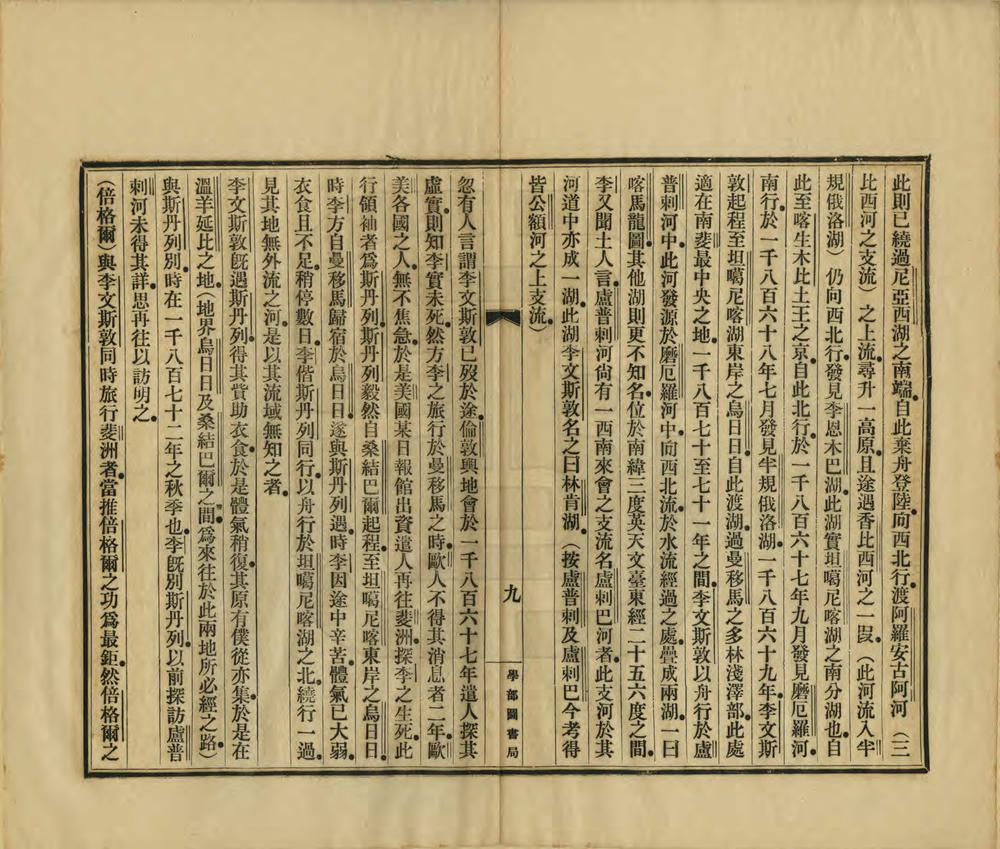 此則已繞過尼亞西湖之南端自此棄舟登陸向西北行渡阿羅安古阿河（三
比西河之支流）之上流尋升一高原且途遇香比西河之一叚（此河流入半
規俄洛湖）仍向西北行發見李恩木巴湖此湖實坦噶尼喀湖之南分湖也自
此至喀生木比土王之京自此北行於一千八百六十七年九月發見磨厄羅河
南行於一千八百六十八年七月發見半規俄洛湖一千八百六十九年李文斯
敦起程至坦噶尼喀湖東岸之烏日日自此渡湖過曼移馬之多林淺澤部此處
適在南斐最中央之地一千八百七十至七十一年之間李文斯敦以舟行於盧
普剌河中此河發源於磨厄羅河中向西北流於水流經過之處疊成兩湖一曰
喀馬龍圖其他湖則更不知名位於南緯三度英天文臺東經二十五六度之間
李又聞土人言盧普剌河尙有一西南來會之支流名盧剌巴河者此支河於其
河道中亦成一湖此湖李文斯敦名之曰林肯湖（按盧普剌及盧剌巴今考得
皆公額河之上支流）
九
學部圖書局
忽有人言謂李文斯敦已歿於途倫敦輿地會於一千八百六十七年遣人探其
虛實則知李實未死然方李之旅行於曼移馬之時歐人不得其消息者二年歐
美各國之人無不焦急於是美國某日報館出資遣人再往斐洲探李之生死此
行領袖者爲斯丹列斯丹列毅然自桑結巴爾起程至坦噶尼喀東岸之烏日日
時李方自曼移馬歸宿於烏日日遂與斯丹列遇時李因途中辛苦體氣已大弱
衣食且不足稍停數日李偕斯丹列同行以舟行於坦噶尼喀湖之北繞行一過
見其地無外流之河是以其流域無知之者
李文斯敦旣遇斯丹列得其貲助衣食於是體氣稍復其原有僕從亦集於是在
溫羊延比之地（地界烏日日及桑結巴爾之間爲來往於此兩地所必經之路）
與斯丹列別時在一千八百七十二年之秋季也李旣別斯丹列以前探訪盧普
剌河未得其詳思再往以訪明之
（倍格爾）與李文斯敦同時旅行斐洲者當推倍格爾之功爲最鉅然倍格爾之